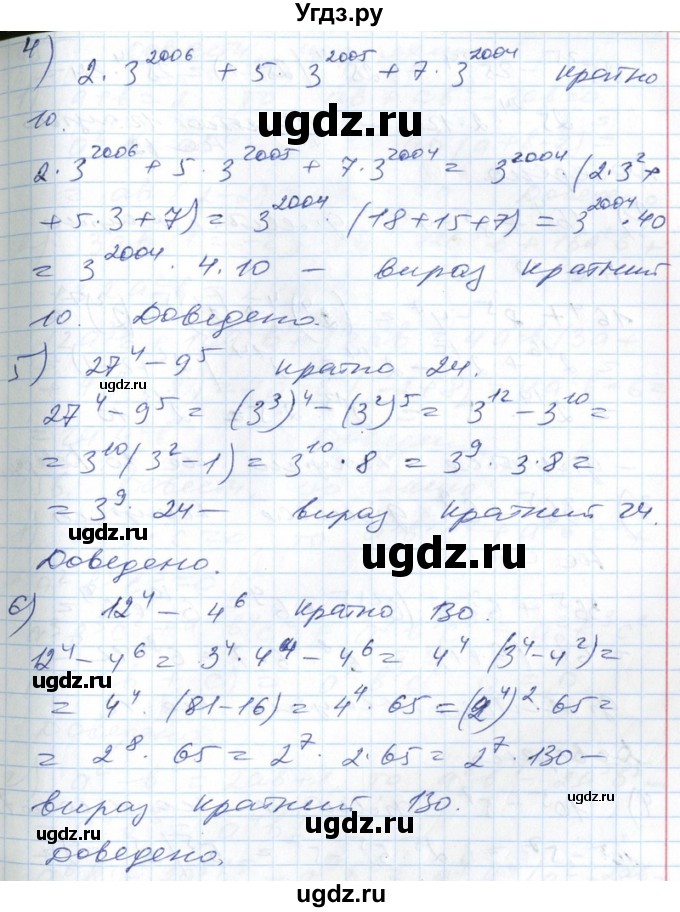 Угдз.ру
4) 2·3²⁰⁰⁶ + 5·3²⁰⁰⁵ + 7·3²⁰⁰⁴ кратно
10.
ugdz.ru
2·3²⁰⁰⁶ + 5·3²⁰⁰⁵ + 7·3²⁰⁰⁴ = 3²⁰⁰⁴·(2·3² +
+ 5·3 + 7) = 3²⁰⁰⁴·(18+15+7) = 3²⁰⁰⁴·40
= 3²⁰⁰⁴·4·10 – вираз кратний
10. Доведено.
5) 27⁴ – 9⁵ кратно 24.
ugdz.ru ugdz.ru
27⁴ – 9⁵ = (3³)⁴ – (3²)⁵ = 3¹² – 3¹⁰ =
= 3¹⁰(3² – 1) = 3¹⁰·8 = 3⁹·3·8 =
= 3⁹·24 – вираз кратний 24.
ugdz.ru
Доведено.
ugdz.ru
6) 12⁴ – 4⁶ кратно 130.
12⁴ – 4⁶ = 3⁴·4⁴ – 4⁶ = 4⁴(3⁴ – 4²) =
ugdz.ru
= 4⁴·(81–16) = 4⁴·65 = (2⁴)²·65 =
= 2⁸·65 = 2⁷·2·65 = 2⁷·130 –
ugdz.ru
вираз кратний 130.
ugdz.ru ugdz.ru
Доведено.
ugdz.ru ugdz.ru